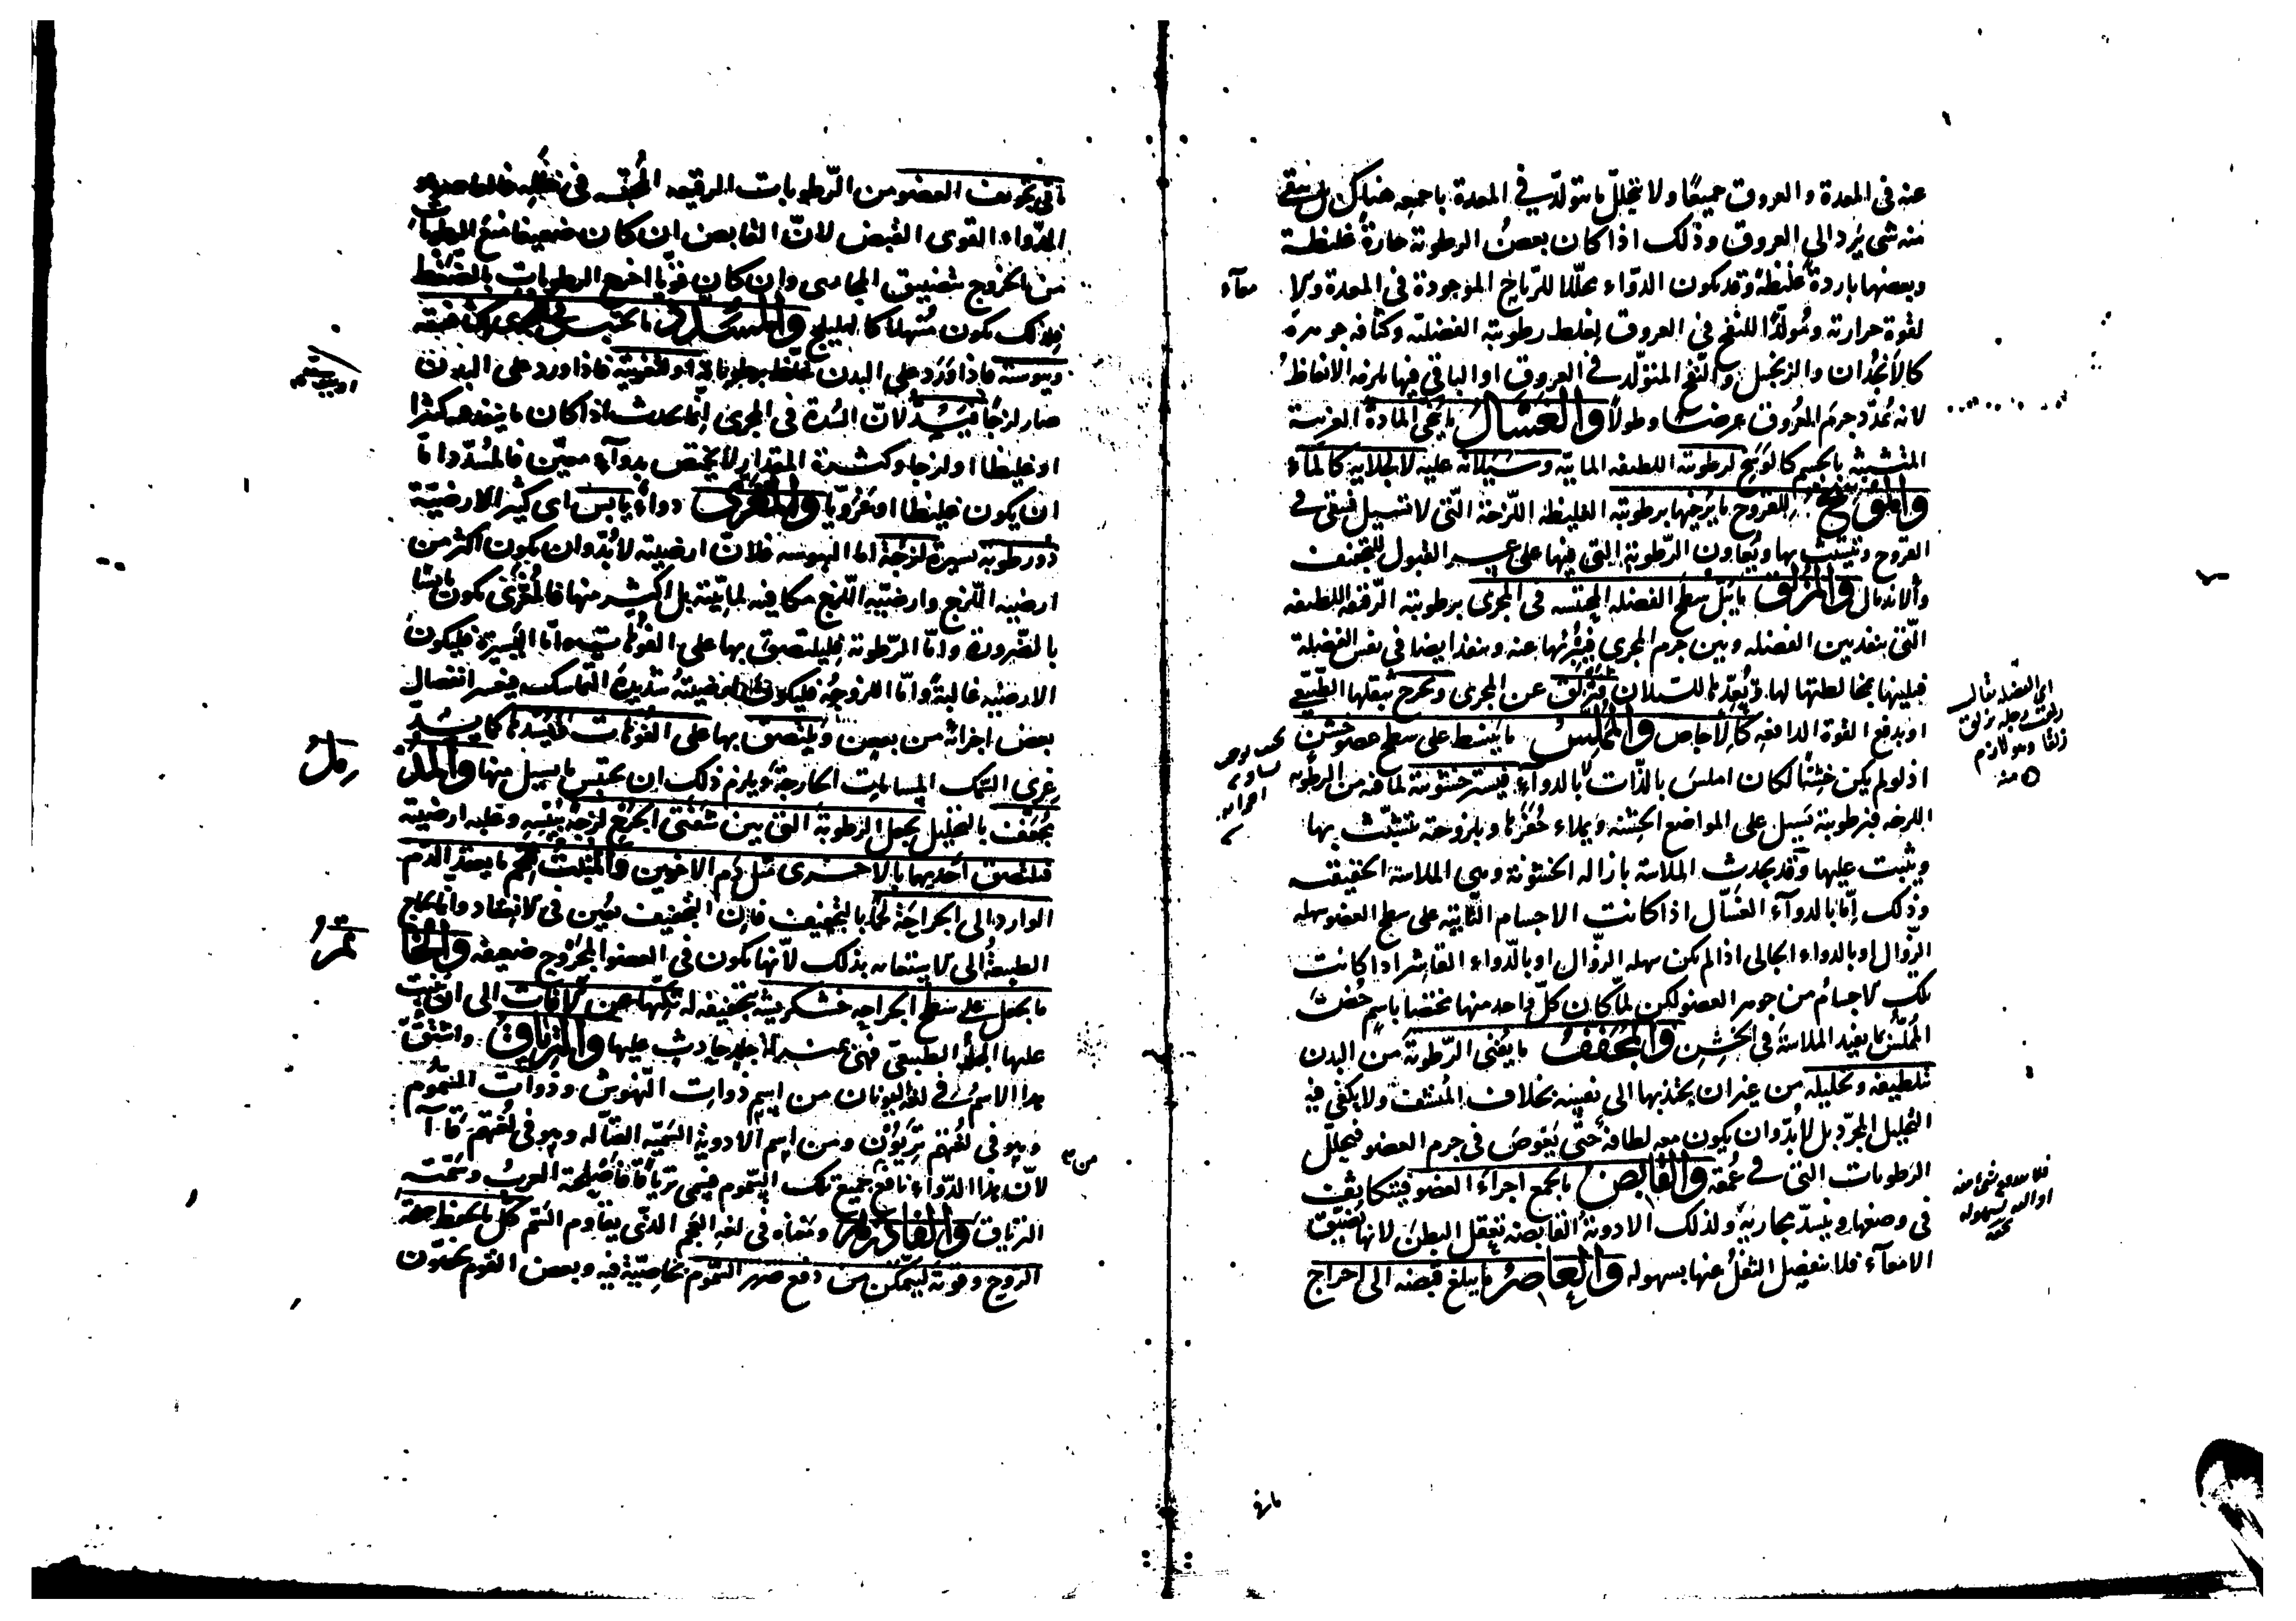 عنه فى المعدة والعروق جميعًا ولا يتحلل ما يتولد فى المعدة باجمعه هناك بل يبقى
منه شى يرد الى العروق وذلك اذا كان بعض الرطوبة حارة غليظة
وبعضها باردة غليظة وقد يكون الدواء محللا للرياح الموجودة فى المعدة والامعآء
لقوة حرارته ومولدًا للنفخ فى العروق لغلظ رطوبته الفضلية وكثافه جوهره
كالانجدان والزنجبيل والنفخ المتولد فى العروق او الباقى فيها يلزمه الانعاظ
لانه يمدد جرم العروق عرضا وطولا والغسال ما ينحى المادة الغريبة
المتشبثه بالجسم كالوسخ لرطوبته اللطيفه المائيه وسيلانه عليه لا بجلائه كالماء
والموسخ للقروح ما يرخيها برطوبته الغليظه اللزجة التى لا تسيل فيبقى فى
القروح وتتشبث بها ويعاون الرطوبة التى فيها على عسر القبول للتجفيف
والاندمال والمزلق ما يبل سطح الفضله المحتبسه فى المجرى برطوبته الرقيقه اللطيفه
التى ينفذ بين الفضله وبين جرم المجرى فيبرئها عنه وينفذ ايضا فى نفس الفضلة
فيلينها بمخالطتها لها ويعدها للسيلان فيزلق عن المجرى وتخرج بثقلها الطبيعى
او بدفع القوة الدافعه كالاجاص والمملس ما ينبسط على سطح عضو خشن
اذ لو لم يكن خشنًا لكان املس بالذات لا بالدواء فيستر خشونته لما فيه من الرطوبه
اللزجه فبرطوبته يسيل على المواضع الخشنه ويملاء حفرها وبلزوجته يتشبث بها
ويثبت عليها وقد يحدث الملاسة بازاله الخشونة وهى الملاسة الحقيقيه
وذلك اما بالدوآء الغسال اذا كانت الاجسام الناتيه على سطح العضو سهله
الزوال او بالدواء الجالى اذا لم يكن سهله الزوال او بالدواء القاشر اذا كانت
تلك الاجسام من جوهر العضو لكن لما كان كل واحد منها مختصا باسم خصت
المملس بما يفيد الملاسة فى الخشن والمجفف ما يفنى الرطوبة من البدن
بتلطيفه وتحليله من غير ان يجذبها الى نفسه بخلاف المنشف ولا يكفى فيه
التحليل المجرد بل لا بد وان يكون معه لطافة حتى يغوص فى جرم العضو فيحلل
الرطوبات التى فى عمقه والقابض ما يجمع اجزاء العضو فيتكاثف
فى وضعها وينسد مجاريه ولذلك الادوية القابضه تعقل البطن لانها تضيق
الامعآء فلا ينفصل الثفل عنها بسهوله والعاصر ما يبلغ قبضه الى اخراج
اى الفضله يقال
زلقت رجله يزلق
زلقا وهو لازم
منه
ما فى
ما فى تجويف العضو من الرطوبات الرقيقه المحتبسه فى خلله فالعاصر هو
الدواء القوى القبض لان القابض ان كان ضعيفا منع الرطوبات
من الخروج بتضييق المجارى وان كان قويا اخرج الرطوبات بالضغط
فلذلك يكون مسهلا كالهليلج والمسدد ما يحتبس فى المجرى لكثافته
ويبوسته فاذا ورد على البدن او لتغريته فاذا ورد على البدن
صار لزجا فيسد لان السدة فى المجرى انما يحدث اذا كان ما ينفذ فيه كثيرا
او غليظا او لزجا وكثرة المقدار لا يختص بدوآء معين فالمسدد اما
ان يكون غليظا او غرويا والمغرى دواء يابس اى كثير الارضية
ذو رطوبة يسيرة لزجة اما اليبوسه فلان ارضيته لا بد وان يكون اكثر من
ارضيه اللزج وارضيه اللزج مكافيه لمائيته بل اكثر منها فالمغرى يكون يابسا
بالضرورة واما الرطوبة فليلتصق بها على الفوهات واما اليسيرة فليكون
الارضيه غالبة واما اللزوجة فليكون ارضيته شديدة التماسك فيعسر انفصال
بعض اجزائه من بعض ويلتصق بها على الفوهات فيسدها كما يسد
غرى السمك المسامات الخارجة ويلزم ذلك ان يحتبس ما يسيل منها والمدمل
يجفف بالتحليل يجعل الرطوبة التى بين شفتى الجرح لزجة بيبسه وغلبه ارضيته
فيلتصق احديهما بالاخرى مثل دم الاخوين والمنبت للحم ما يعقد الدم
الوارد الى الجراحة لحما بالتجفيف فان التجفيف يعين فى الانعقاد وانما يحتاج
الطبيعة الى الاستعانه بذلك لانها يكون فى العضو المجروح ضعيفه والخاتم
ما يجعل على سطح الجراحه خشكريشه بتجفيفه له تكنها عن الافات الى ان ينبت
عليها الجلد الطبيعى فهى بمنزلة جلد حادث عليها والترياق واشتق
هذا الاسم فى لغه اليونان من اسم ذوات النهوش وذوات السموم
وهو فى لغتهم تريون ومن اسم الادوية السميه القتاله وهو فى لغتهم قاآ
لان هذا الدواء نافع لجميع تلك السموم فيسمى ترياقا فاصلحة العرب وسمته
الترياق والفادزهر ومعناه فى لغه العجم الذى يقاوم السم كل ما يحفظ صحة
الروح وقوته ليتمكن من دفع ضرر السموم بخاصيته فيه وبعض القوم يخصون